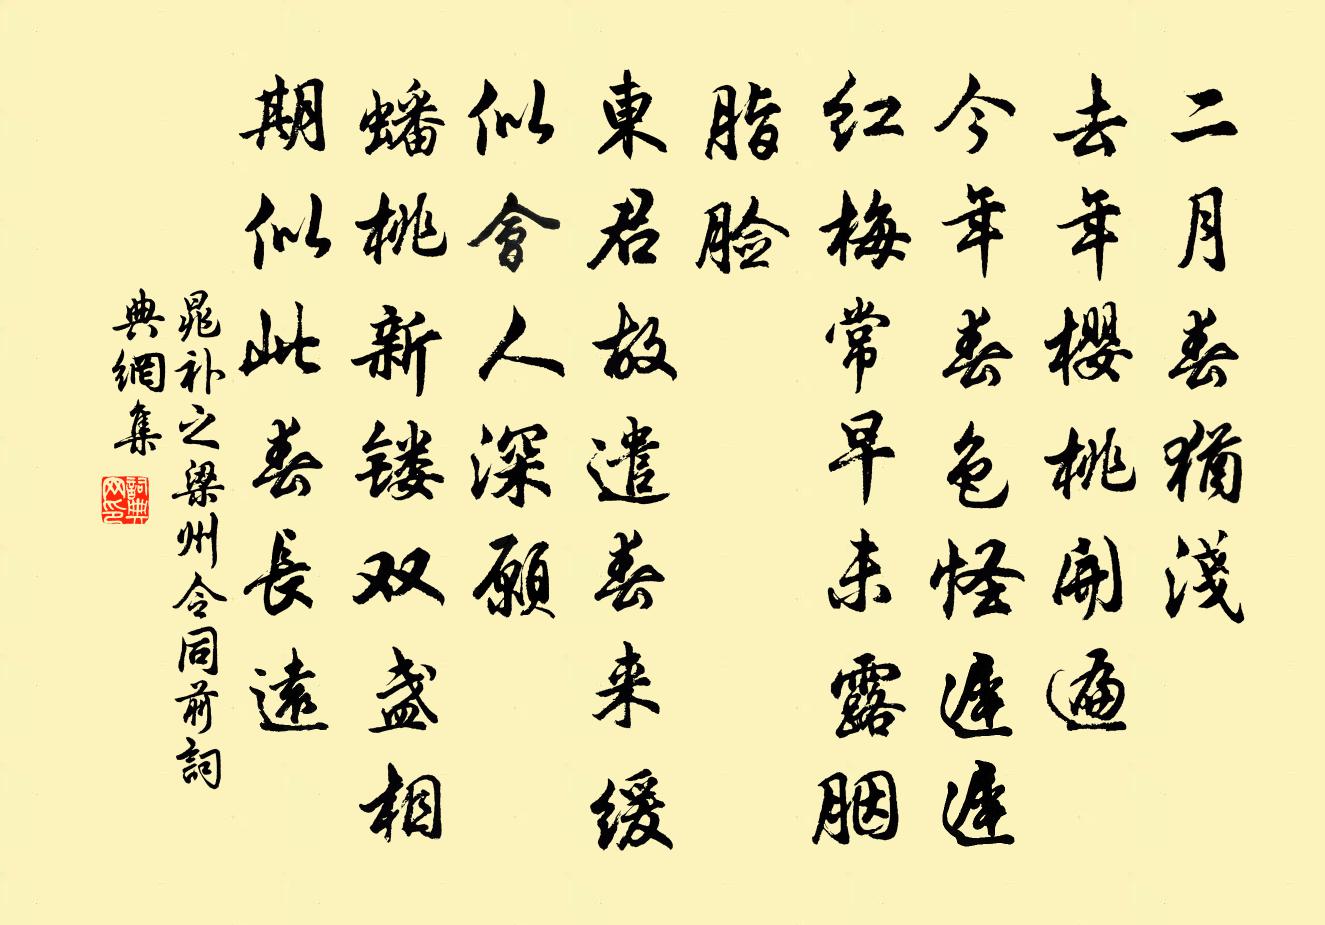 二月春猶淺
去年櫻桃開遍
今年春色怪遲遲
红梅常早未露胭
脂脸
東君故遣春来缓
似會人深願
蟠桃新镂双盏相
期似此春長遠
晁补之梁州令同前詞
典網集
詞典网印